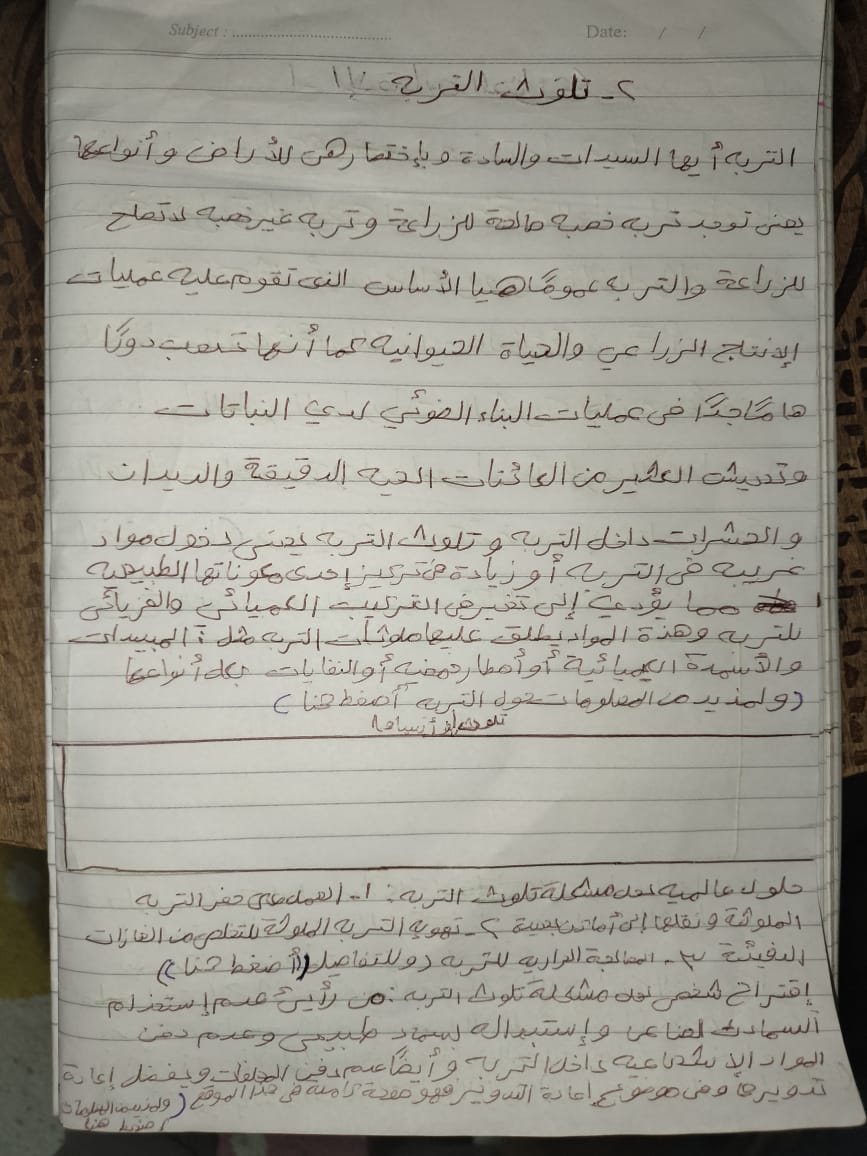 Subject : ........................................ Date: / /
٢- تلوث التربه
التربه أيها السيدات والسادة وبإختصار هى للأراض وأنواعها
يعنى توجد تربه خصبه صالحة للزراعة وتربه غير خصبه لا تصلح
للزراعة والتربه عمومًا هيا الأساس التى تقوم عليه عمليات
الإنتاج الزراعي والحياة الحيوانيه كما أنها تلعب دورًا
هامًا جدًا فى عمليات البناء الضوئي لدي النباتات
وتعيش الكثير من الكائنات الحيه الدقيقة والديدان
والحشرات داخل التربه وتلوث التربه يعنى دخول مواد
غريبه فى التربه أو زيادة فى تركيز إحدى مكوناتها الطبيعيه
مما يؤدي إلى تغير فى التركيب الكميائي والفزيائى
للتربه وهذة المواد يطلق عليها ملوثات التربه مثل : المبيدات
والأسمدة الكميائية أو أمطار حمضيه أو النفايات بكل أنواعها
(ولمذيد من المعلومات حول التربه أضغط هنا)
تلوثها وأسبابها
حلول عالميه لحل مشكلة تلوث التربه : ١- العمل على حفر التربه
الملوثة ونقلها إلى أماكن بعيدة ٢- تهوية التربه الملوثة للتخلص من الغازات
٣- المعالجة الحراريه للتربه وللتفاصيل (أضغط هنا)
إقتراح شخصى لحل مشكلة تلوث التربه : من رأيي عدم إستخدام
السماد الصناعى وإستبداله بسماد طبيعى وعدم دفن
المواد الإشعاعيه داخل التربه وأيضًا عدم دفن المخلفات ويفضل إعادة
تدويرها وفى موضوع إعادة التدوير فهو صفحة كامله فى هذا الموقع (ولمذيد من المعلومات
أضغط هنا